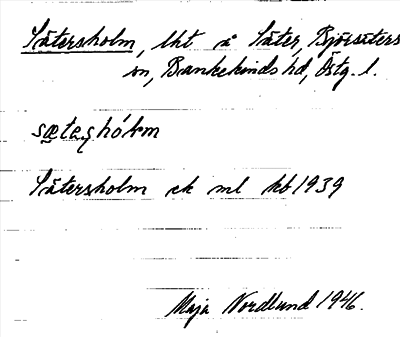 Sätersholm, lht å Säter, Björsäters
sn, Bankekinds hd, Östg. l.
sætəʂhólm
Sätersholm ek ml kb 1939
Maja Nordlund 1946.